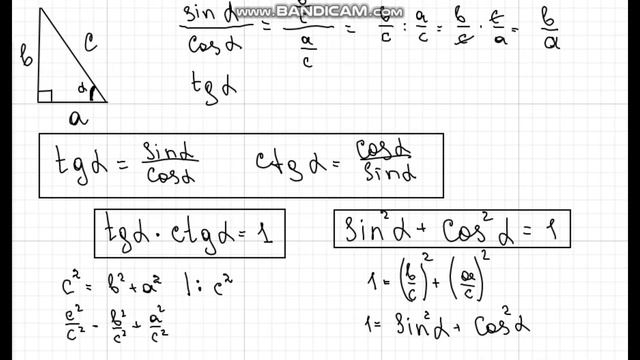 www.BANDICAM.com
sinα/cosα = b/c / a/c = b/c : a/c = b/c · c/a = b/a
tgα
b c α a
tgα = sinα/cosα ctgα = cosα/sinα
tgα · ctgα = 1 sin²α + cos²α = 1
c² = b² + a² | : c² 1 = (b/c)² + (a/c)²
c²/c² = b²/c² + a²/c² 1 = sin²α + cos²α